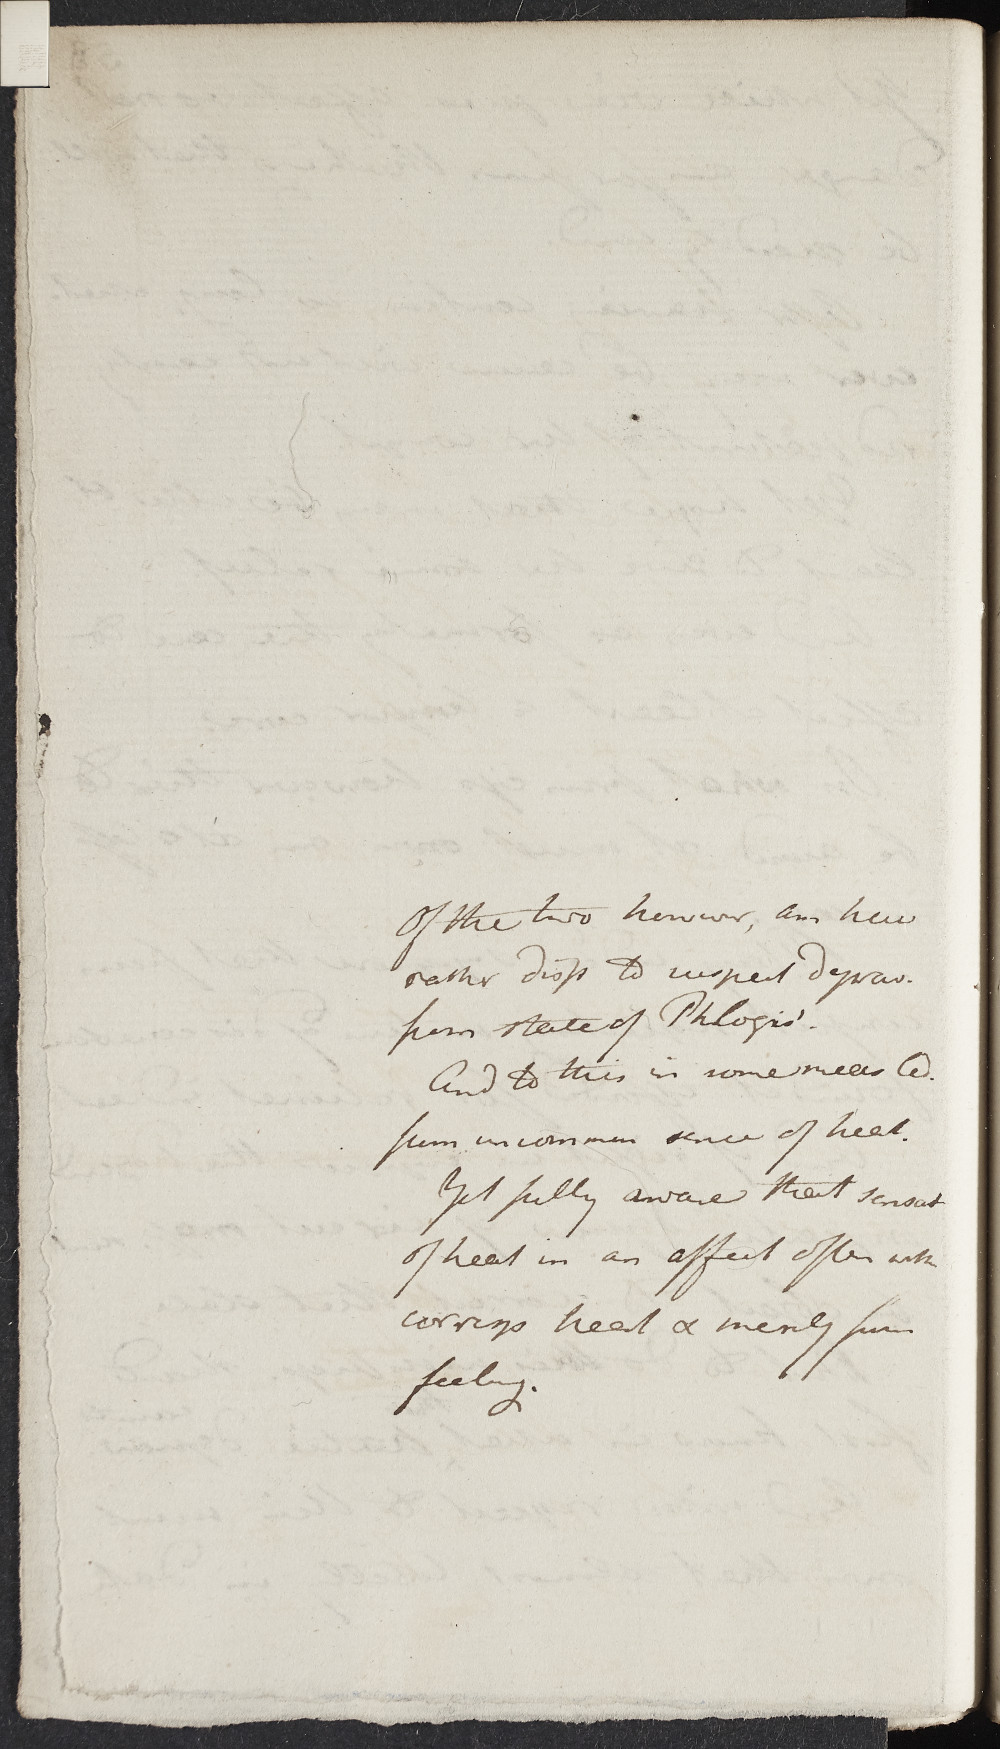 Of the two however, am here
rather disp to suspect deprav.
from state of Phlogis'.
And to this in some meas ad.
from uncommon sence of heat.
Yet fully aware that sensat
of heat in an affect often with
corresp heat & merely from
feeling.